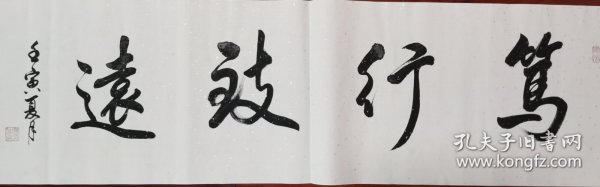 篤行致遠
壬寅夏月
孔夫子旧书网
www.kongfz.com